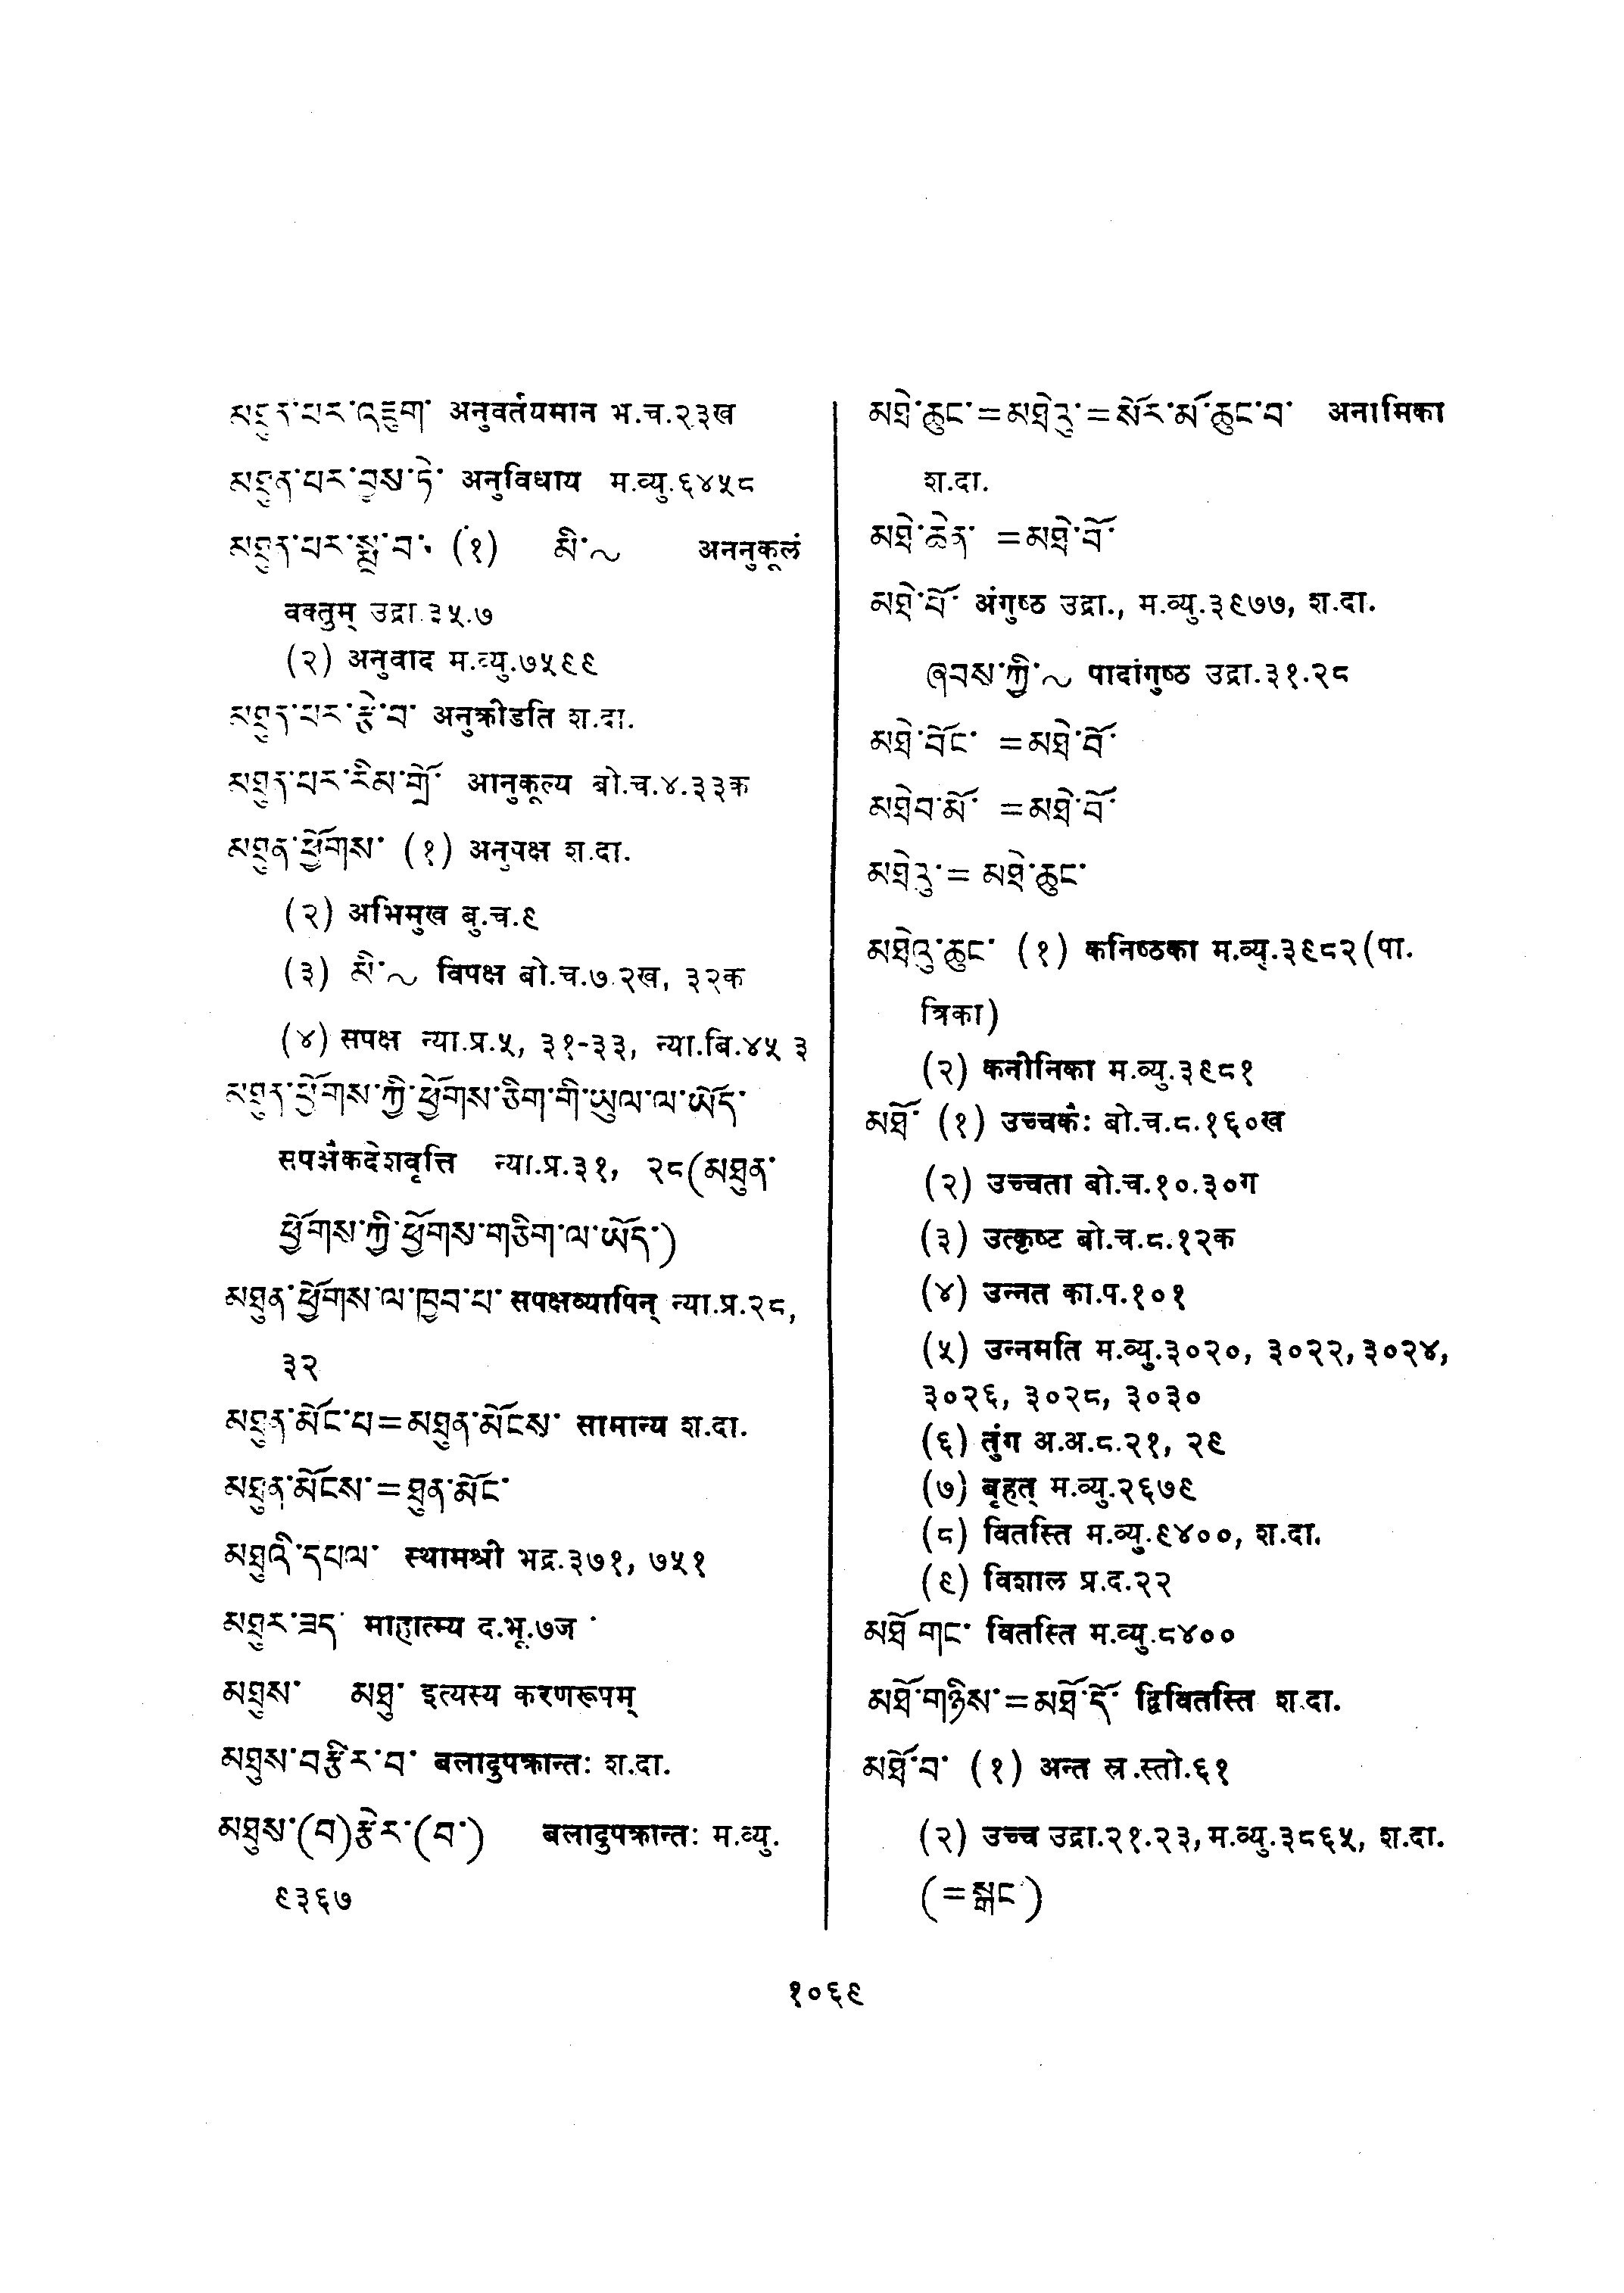 མཐུན་པར་འཇུག་ अनुवर्तयमान भ.च.२३ख
མཐུན་པར་བྱས་ཏེ་ अनुविधाय म.व्यु.६४५८
མཐུན་པར་སྨྲ་བ་ (१) མི་~ अननुकूलं
वक्तुम् उद्रा.३५.७
(२) अनुवाद म.व्यु.७५९९
མཐུན་པར་རྩེ་བ་ अनुक्रीडति श.दा.
མཐུན་པར་རིམ་གྲོ་ आनुकूल्य बो.च.४.३३क
མཐུན་ཕྱོགས་ (१) अनुपक्ष श.दा.
(२) अभिमुख बु.च.९
(३) མི་~ विपक्ष बो.च.७.२ख, ३२क
(४) सपक्ष न्या.प्र.५, ३१-३३, न्या.बि.४५ ३
མཐུན་ཕྱོགས་ཀྱི་ཕྱོགས་ཅིག་གི་ཡུལ་ལ་ཡོད་
सपक्षैकदेशवृत्ति न्या.प्र.३१, २८(མཐུན་
ཕྱོགས་ཀྱི་ཕྱོགས་གཅིག་ལ་ཡོད་)
མཐུན་ཕྱོགས་ལ་ཁྱབ་པ་ सपक्षव्यापिन् न्या.प्र.२८,
३२
མཐུན་མོང་པ=མཐུན་མོངས་ सामान्य श.दा.
མཐུན་མོངས་=ཐུན་མོང་
མཐུའི་དཔལ་ स्थामश्री भद्र.३७१, ७५१
མཐུར་ཟད་ माहात्म्य द.भू.७ज
མཐུས་ མཐུ་ इत्यस्य करणरूपम्
མཐུས་བརྩིར་བ་ बलादुपक्रान्तः श.दा.
མཐུས་(བ)རྩེར་(བ་) बलादुपक्रान्तः म.व्यु.
९३६७
མཐེ་ཆུང་=མཐེའུ་=སོར་མོ་ཆུང་བ་ अनामिका
श.दा.
མཐེ་ཆེན་ =མཐེ་བོ་
མཐེ་བོ་ अंगुष्ठ उद्रा., म.व्यु.३९७७, श.दा.
ཞབས་ཀྱི་~ पादांगुष्ठ उद्रा.३१.२८
མཐེ་བོང་ =མཐེ་བོ་
མཐེབ་མོ་ =མཐེ་བོ་
མཐེའུ་= མཐེ་ཆུང་
མཐེའུ་ཆུང་ (१) कनिष्ठका म.व्यु.३९८२(पा.
त्रिका)
(२) कनीनिका म.व्यु.३९८१
མཐོ་ (१) उच्चकैः बो.च.८.१६०ख
(२) उच्चता बो.च.१०.३०ग
(३) उत्कृष्ट बो.च.८.१२क
(४) उन्नत का.प.१०१
(५) उन्नमति म.व्यु.३०२०, ३०२२, ३०२४,
३०२६, ३०२८, ३०३०
(६) तुंग अ.अ.८.२१, २९
(७) बृहत् म.व्यु.२६७९
(८) वितस्ति म.व्यु.९४००, श.दा.
(९) विशाल प्र.द.२२
མཐོ་གང་ वितस्ति म.व्यु.८४००
མཐོ་གཉིས་=མཐོ་དོ་ द्विवितस्ति श.दा.
མཐོ་བ་ (१) अन्त स्र.स्तो.६१
(२) उच्च उद्रा.२१.२३, म.व्यु.३८६५, श.दा.
(=སྒང་)
१०६९